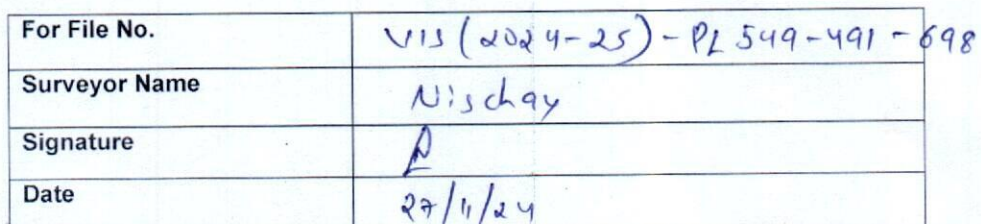 For File No. VIS (2024-25) - PL 549-491-698
Surveyor Name Nischay
Signature
Date 27/11/24